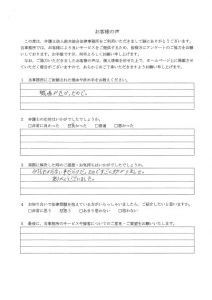 お客様の声
この度は、弁護士法人鈴木総合法律事務所をご利用いただきまして誠にありがとうございます。
当事務所では、お客様により良いサービスをご提供するため、皆様方にアンケートのご協力をお願い
しております。お手数ですが、何卒よろしくお願い申し上げます。
なお、ご協力いただきましたお客様の声は、個人情報を伏せた上で、ホームページ上に掲載させ
ていただく場合がございますので、あらかじめご了承いただきますようお願い申し上げます。
1 当事務所にご依頼された理由や決め手をお教えください。
職場が近かったので。
2 弁護士の対応はいかがでしたでしょうか。
□非常に良かった □良かった □普通 □悪かった
3 実際に解決した時のご感想・お気持ちはいかがでしたでしょうか。
ありがとうございました。
4 お知り合いで法律問題を抱えている方がいらっしゃいましたら、ご紹介したいと思いますか。
□非常に思う □思う □あまり思わない □思わない
5 最後に、当事務所のサービスや接客についてのご意見・ご要望をお願いいたします。